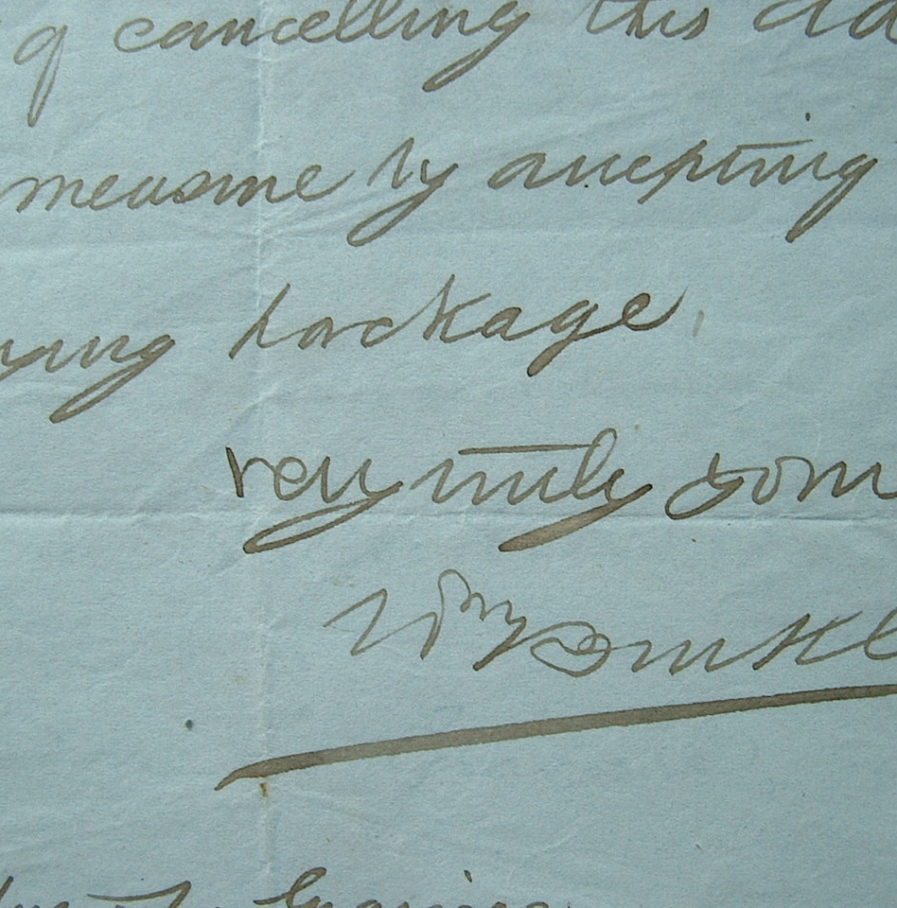 of cancelling this
measure by accepting
ying package
very truly your
Wm